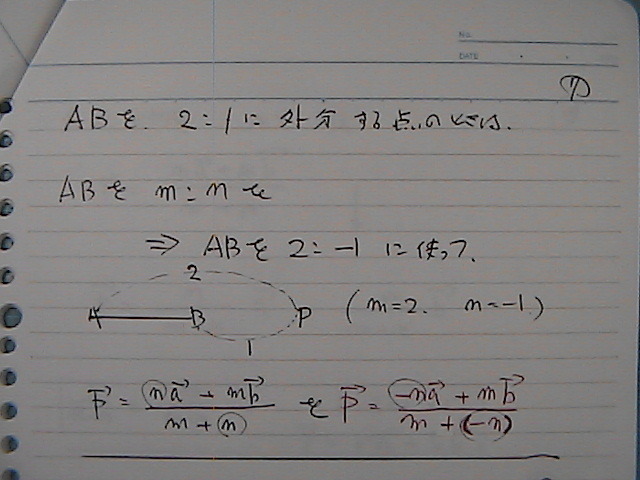 NO.
DATE
⑦
ABを 2:1に 外分する点のときは.
ABを m:nを
⇒ ABを 2:-1 に使って.
2
A B P (m=2. n=-1.)
1
p→ = (na→ + mb→)/(m+n) を p→ = (-na→ + mb→)/(m+(-n))